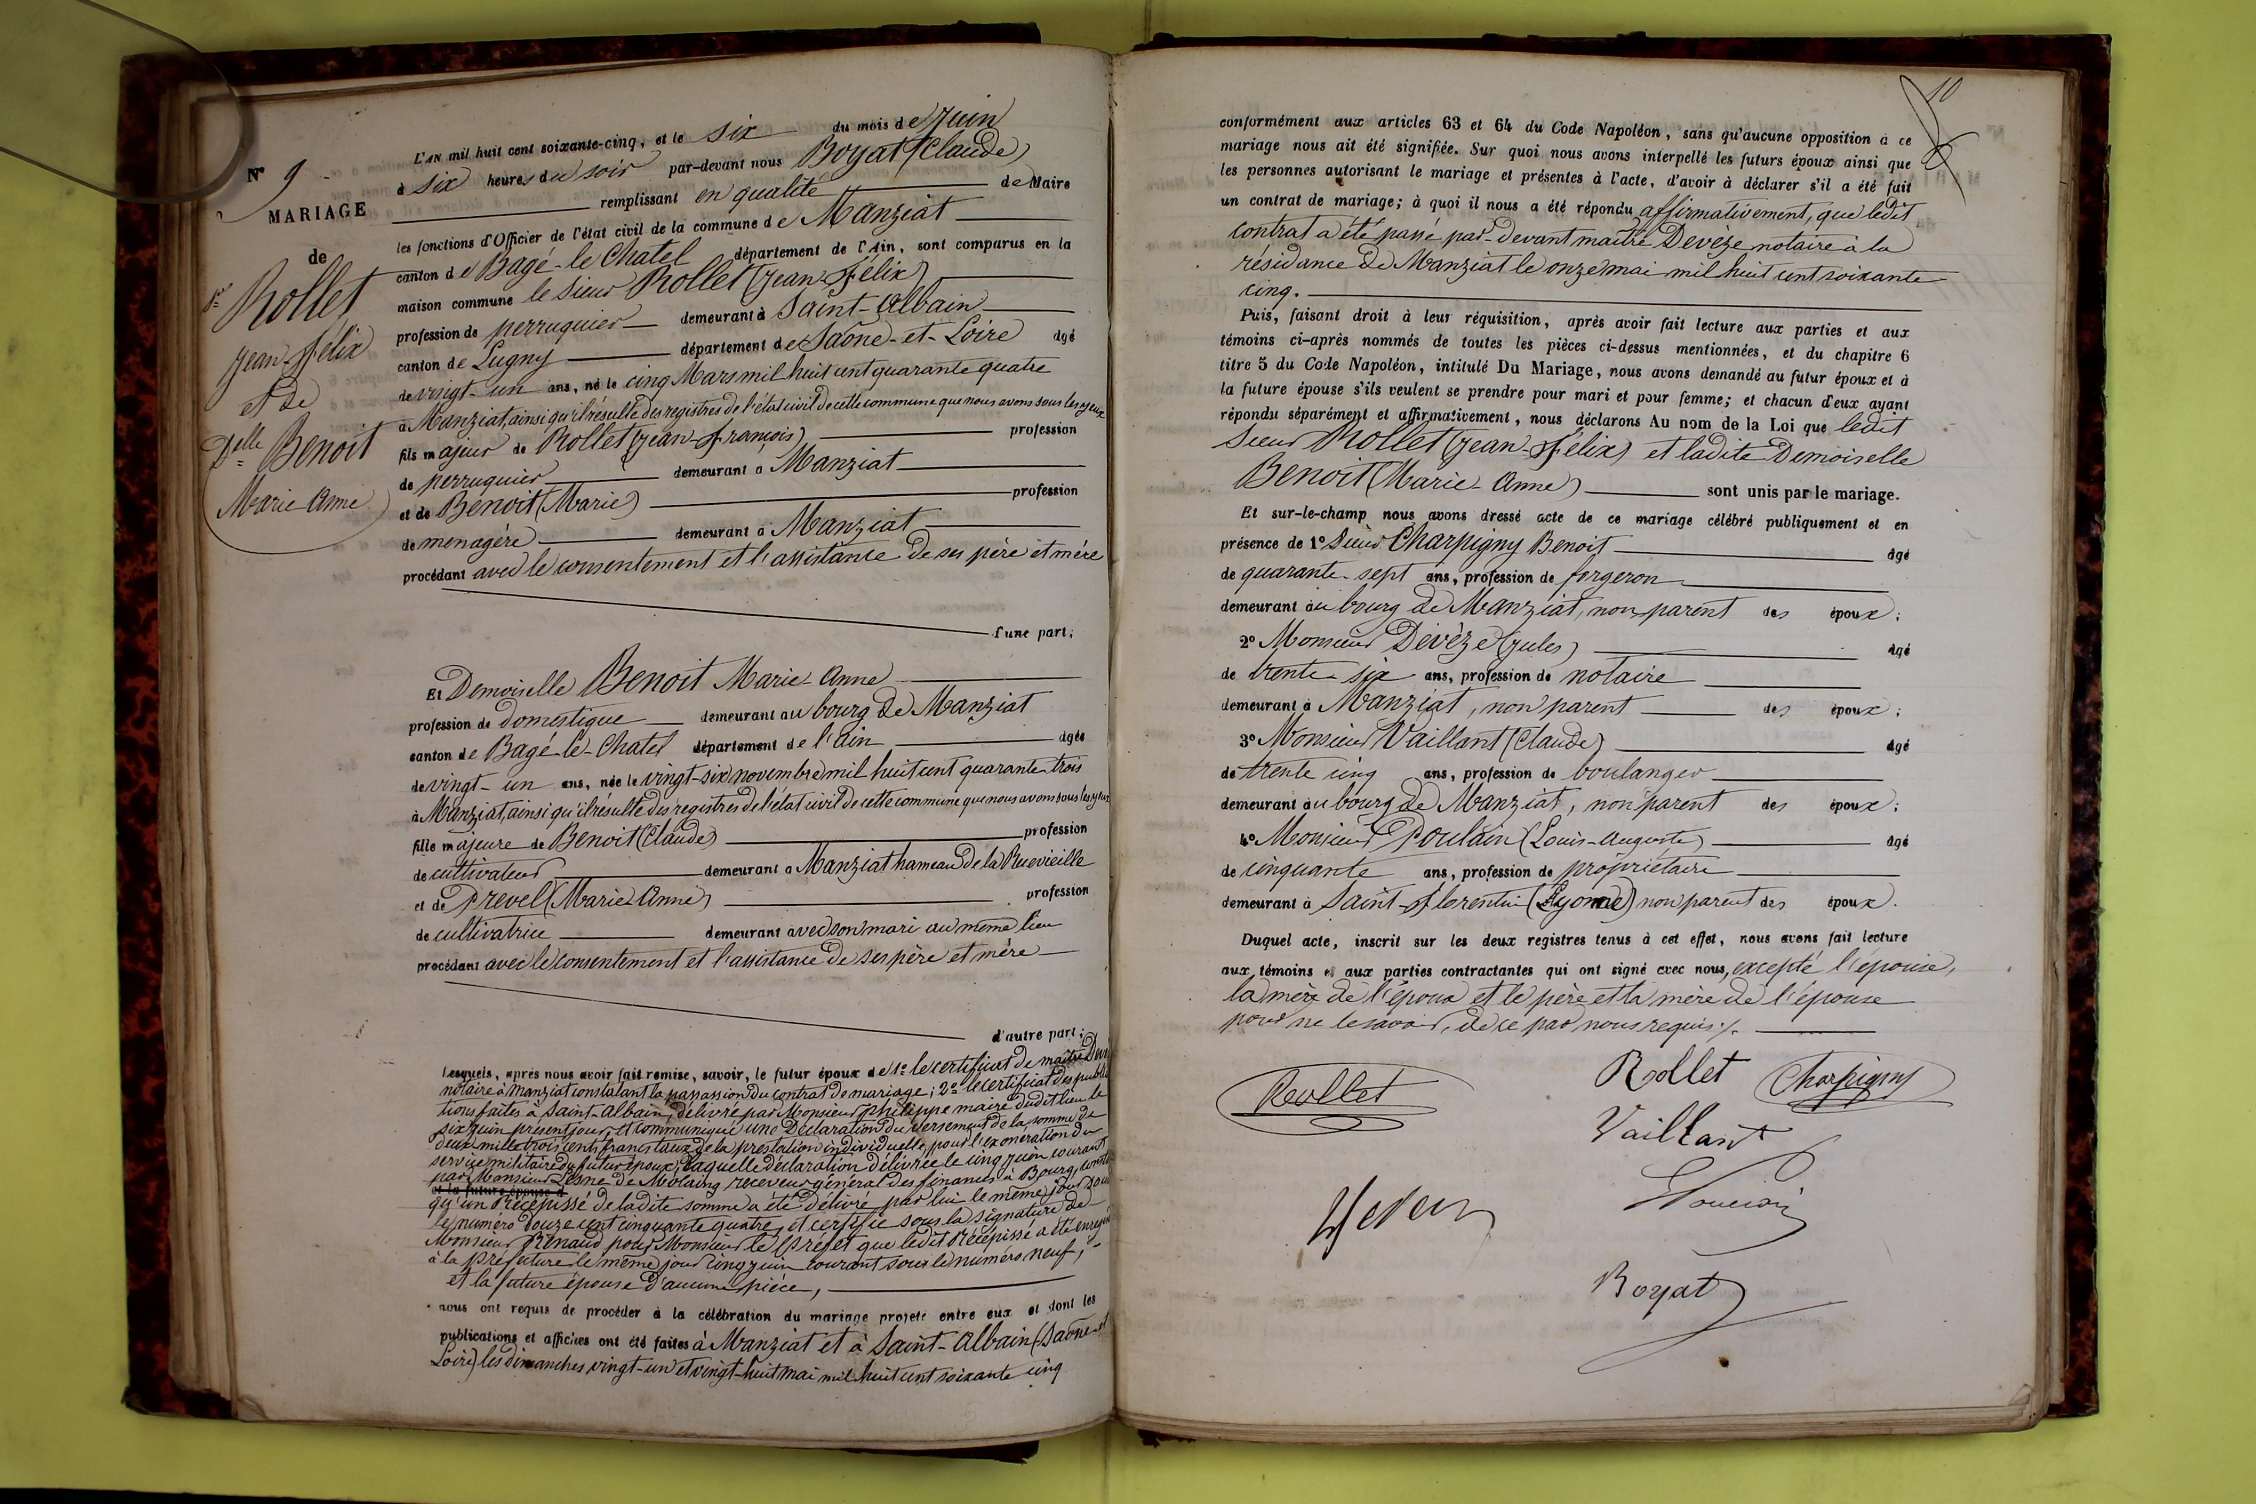 N° 9
MARIAGE
de
Sr Rollet
Jean-Félix
et de
Delle Benoit
Marie-Anne
L'AN mil huit cent soixante-cinq, et le six du mois de Juin
à six heures du soir par-devant nous Boyat (Claude)
remplissant en qualité de Maire
les fonctions d'Officier de l'état civil de la commune de Manziat
canton de Bagé-le-Chatel département de l'Ain, sont comparus en la
maison commune le Sieur Rollet (Jean-Félix)
profession de perruquier demeurant à Saint-Albain
canton de Lugny département de Saône-et-Loire âgé
de vingt-un ans, né le cinq Mars mil huit cent quarante quatre
à Manziat, ainsi qu'il résulte des registres de l'état civil de cette commune que nous avons sous les yeux
fils majeur de Rollet (Jean-François) profession
de perruquier demeurant à Manziat
et de Benoit (Marie) profession
de menagère demeurant à Manziat
procédant avec le consentement et l'assistance de ses père et mère
d'une part;
Et Demoiselle Benoit Marie-Anne
profession de domestique demeurant au bourg de Manziat
canton de Bagé-le-Chatel département de l'Ain âgée
de vingt-un ans, née le vingt-six novembre mil huit cent quarante-trois
à Manziat, ainsi qu'il résulte des registres de l'état civil de cette commune que nous avons sous les yeux
fille majeure de Benoit (Claude) profession
de cultivateur demeurant à Manziat hameau de la Ruevieille
et de Prevel (Marie-Anne) profession
de cultivatrice demeurant avec son mari au même lieu
procédant avec le consentement et l'assistance de ses père et mère
d'autre part;
Lesquels, après nous avoir fait remise, savoir, le futur époux de 1° le certificat de maître
notaire à Manziat constatant la passation du contrat de mariage; 2° le certificat des publica
tions faites à Saint-Albain, délivré par Monsieur Philippe maire dudit lieu le
six juin présent jour, et communiqué une Déclaration du versement de la somme de
deux mille trois cents francs taux de la prestation individuelle, pour l'exonération du
service militaire du futur époux, laquelle déclaration délivrée le cinq juin courant
par Monsieur Lesne de Molaing receveur général des finances à Bourg,
et la future épouse d
qu'un Récépissé de ladite somme a été délivré par lui le même jour sous
le numéro douze cent cinquante quatre, et certifie sous la signature de
Monsieur Renaud pour Monsieur le Préfet que ledit Récépissé a été
à la préfecture le même jour cinq juin courant sous le numéro neuf;
et la future épouse d'aucune pièce,
nous ont requis de procéder à la célébration du mariage projeté entre eux et dont les
publications et affiches ont été faites à Manziat et à Saint-Albain (Saône-et
Loire) les dimanches vingt-un et vingt-huit mai mil huit cent soixante cinq
10
conformément aux articles 63 et 64 du Code Napoléon, sans qu'aucune opposition à ce
mariage nous ait été signifiée. Sur quoi nous avons interpellé les futurs époux ainsi que
les personnes autorisant le mariage et présentes à l'acte, d'avoir à déclarer s'il a été fait
un contrat de mariage; à quoi il nous a été répondu affirmativement, que ledit
contrat a été passé par-devant maître Devèze notaire à la
résidance de Manziat le onze mai mil huit cent soixante
cinq.
Puis, faisant droit à leur réquisition, après avoir fait lecture aux parties et aux
témoins ci-après nommés de toutes les pièces ci-dessus mentionnées, et du chapitre 6
titre 5 du Code Napoléon, intitulé Du Mariage, nous avons demandé au futur époux et à
la future épouse s'ils veulent se prendre pour mari et pour femme; et chacun d'eux ayant
répondu séparément et affirmativement, nous déclarons Au nom de la Loi que ledit
Sieur Rollet (Jean-Félix) et ladite Demoiselle
Benoit (Marie-Anne) sont unis par le mariage.
Et sur-le-champ nous avons dressé acte de ce mariage célébré publiquement et en
présence de 1° Sieur Charpigny Benoit âgé
de quarante-sept ans, profession de forgeron
demeurant au bourg de Manziat, non parent des époux;
2° Monsieur Devèze (Jules) âgé
de trente-six ans, profession de notaire
demeurant à Manziat, non parent des époux;
3° Monsieur Vaillant (Claude) âgé
de trente cinq ans, profession de boulanger
demeurant au bourg de Manziat, non parent des époux;
4° Monsieur Poulain (Louis-Auguste) âgé
de cinquante ans, profession de propriétaire
demeurant à Saint-Florentin (Lyonne) non parent des époux.
Duquel acte, inscrit sur les deux registres tenus à cet effet, nous avons fait lecture
aux témoins et aux parties contractantes qui ont signé avec nous, excepté l'épouse,
la mère de l'époux et le père et la mère de l'épouse
pour ne le savoir, de ce par nous requis./.
Rollet
Rollet
Charpigny
Vaillant
Boyat